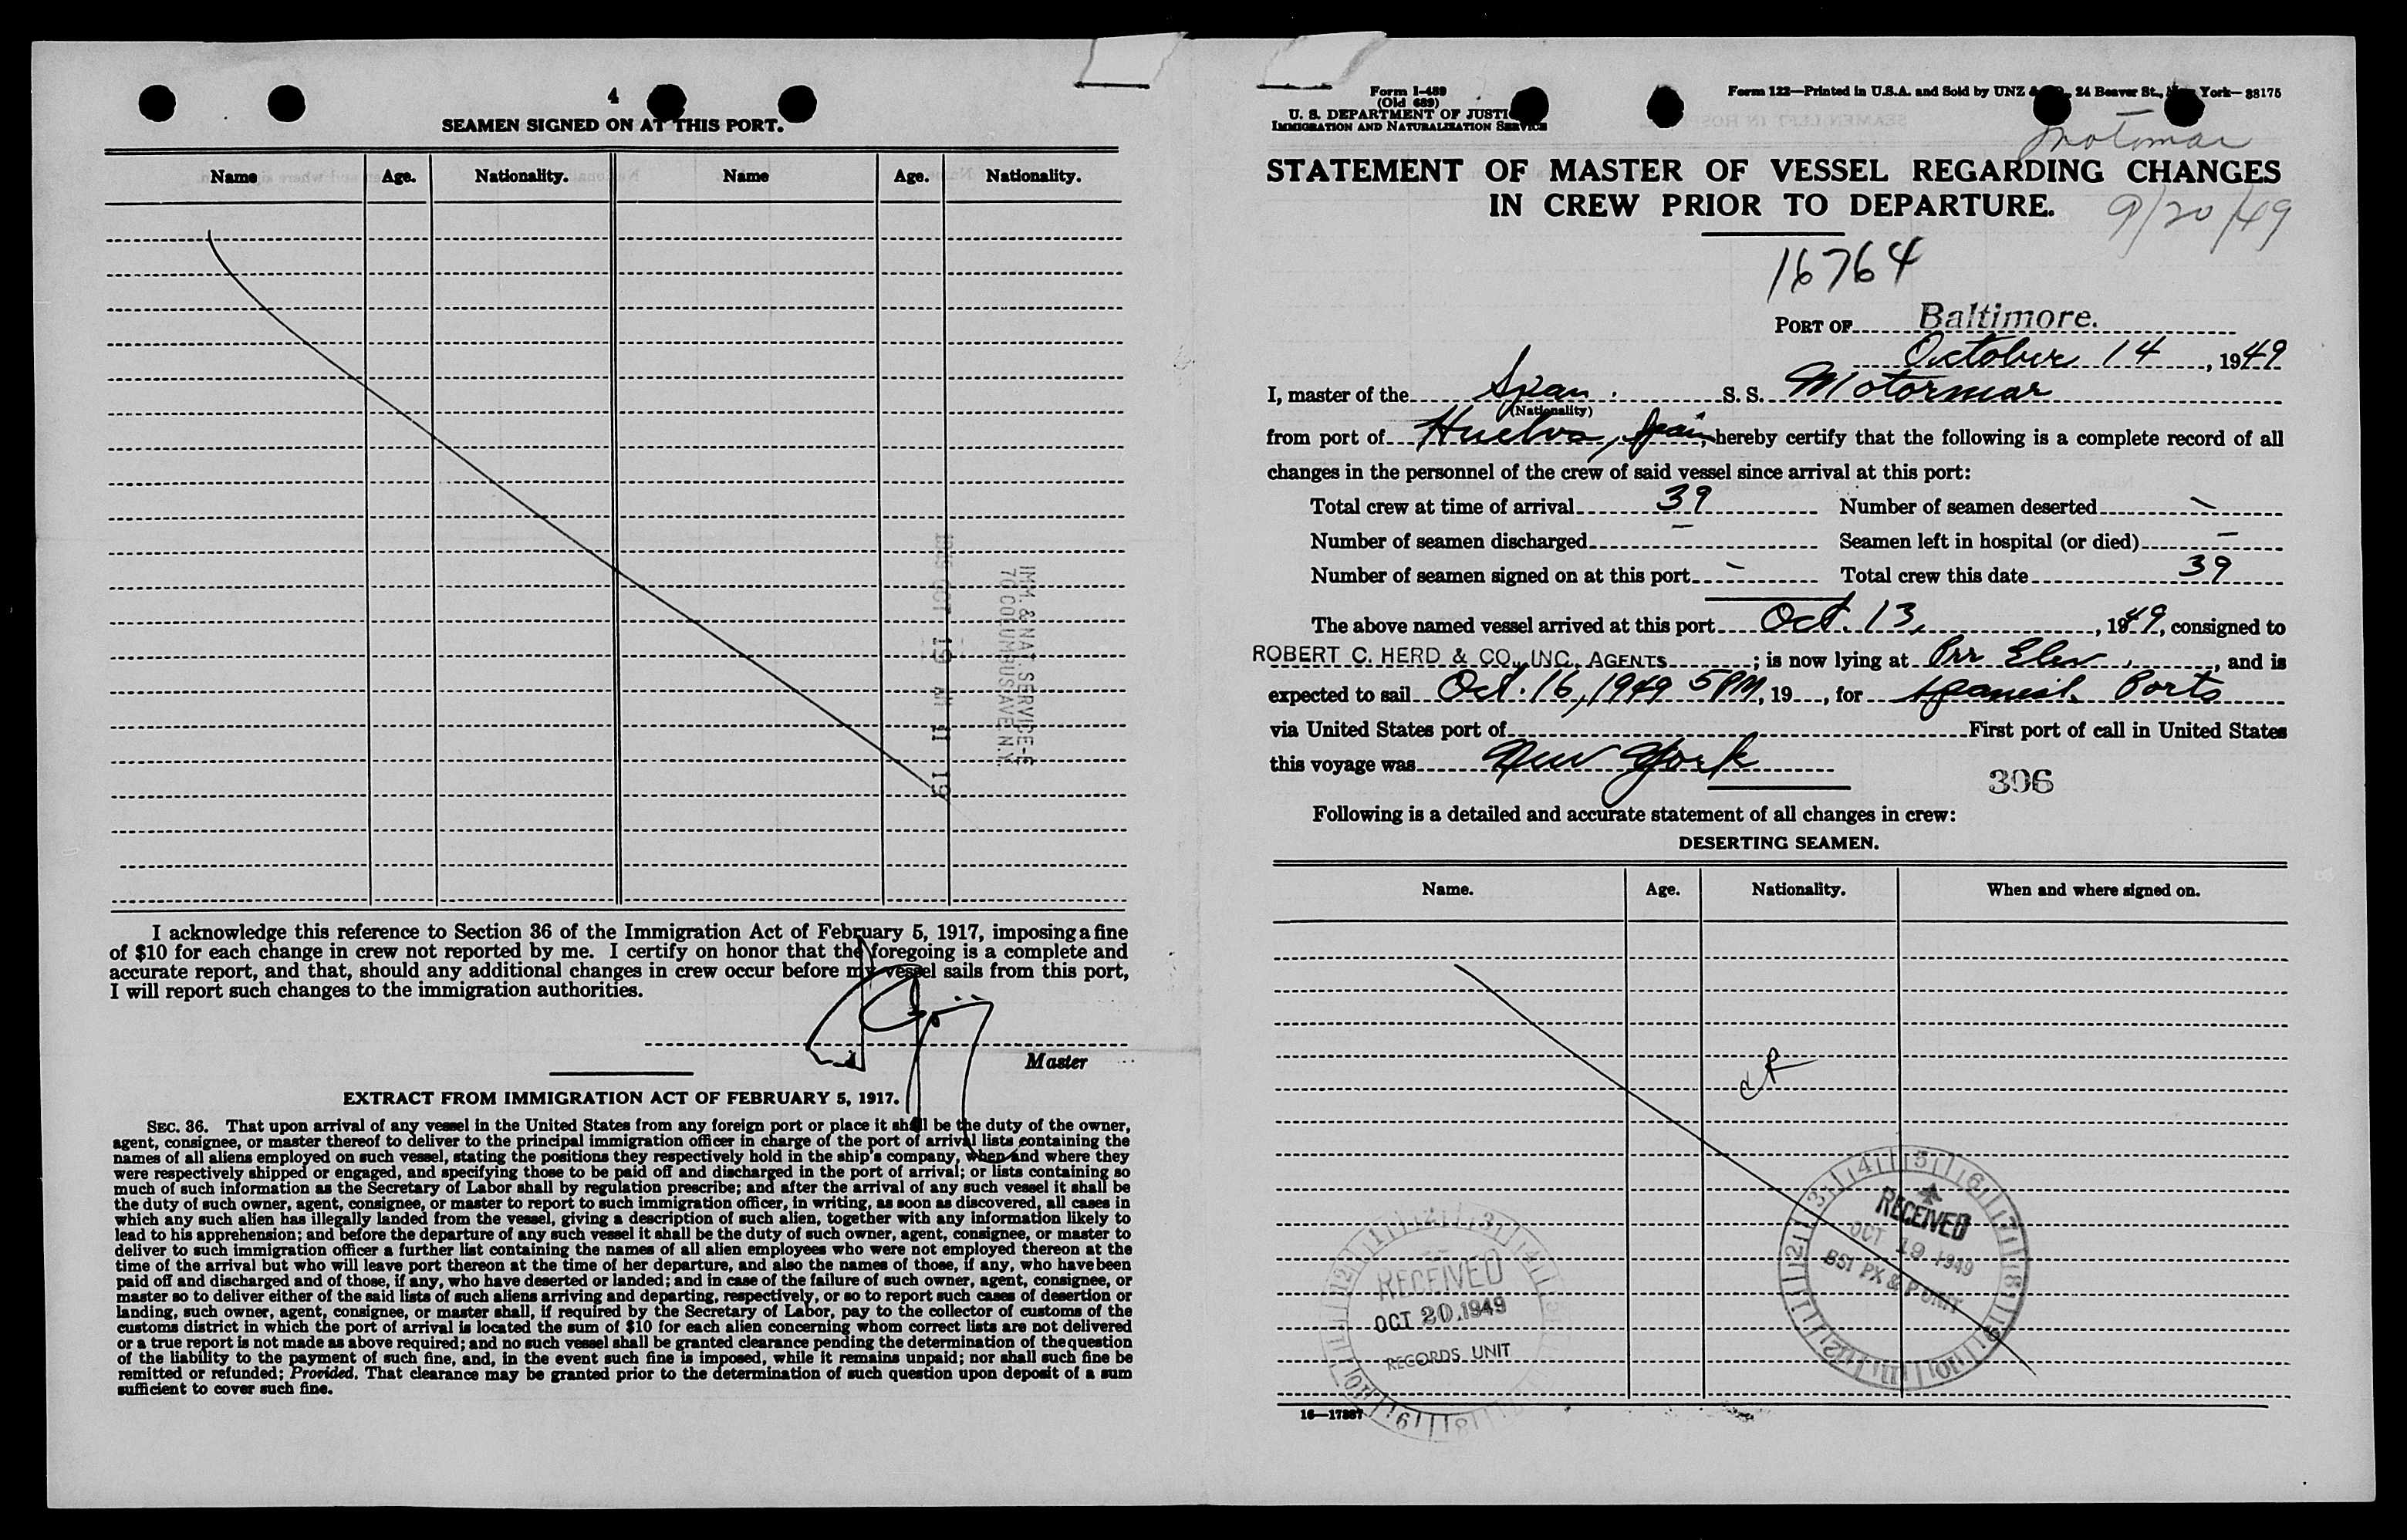 4
SEAMEN SIGNED ON AT THIS PORT.
Name Age. Nationality. Name Age. Nationality.
IMM. & NAT. SERVICE-E
70 COLUMBUS AVE N.Y.
OCT 19 AM 11 19
I acknowledge this reference to Section 36 of the Immigration Act of February 5, 1917, imposing a fine
of $10 for each change in crew not reported by me. I certify on honor that the foregoing is a complete and
accurate report, and that, should any additional changes in crew occur before my vessel sails from this port,
I will report such changes to the immigration authorities.
Master
EXTRACT FROM IMMIGRATION ACT OF FEBRUARY 5, 1917.
SEC. 36. That upon arrival of any vessel in the United States from any foreign port or place it shall be the duty of the owner,
agent, consignee, or master thereof to deliver to the principal immigration officer in charge of the port of arrival lists containing the
names of all aliens employed on such vessel, stating the positions they respectively hold in the ship's company, when and where they
were respectively shipped or engaged, and specifying those to be paid off and discharged in the port of arrival; or lists containing so
much of such information as the Secretary of Labor shall by regulation prescribe; and after the arrival of any such vessel it shall be
the duty of such owner, agent, consignee, or master to report to such immigration officer, in writing, as soon as discovered, all cases in
which any such alien has illegally landed from the vessel, giving a description of such alien, together with any information likely to
lead to his apprehension; and before the departure of any such vessel it shall be the duty of such owner, agent, consignee, or master to
deliver to such immigration officer a further list containing the names of all alien employees who were not employed thereon at the
time of the arrival but who will leave port thereon at the time of her departure, and also the names of those, if any, who have been
paid off and discharged and of those, if any, who have deserted or landed; and in case of the failure of such owner, agent, consignee, or
master so to deliver either of the said lists of such aliens arriving and departing, respectively, or so to report such cases of desertion or
landing, such owner, agent, consignee, or master shall, if required by the Secretary of Labor, pay to the collector of customs of the
customs district in which the port of arrival is located the sum of $10 for each alien concerning whom correct lists are not delivered
or a true report is not made as above required; and no such vessel shall be granted clearance pending the determination of the question
of the liability to the payment of such fine, and, in the event such fine is imposed, while it remains unpaid; nor shall such fine be
remitted or refunded; Provided, That clearance may be granted prior to the determination of such question upon deposit of a sum
sufficient to cover such fine.
Form I-489
(Old 689)
U. S. DEPARTMENT OF JUSTI
IMMIGRATION AND NATURALIZATION SERVICE
Form 122—Printed in U.S.A. and Sold by UNZ & 24 Beaver St., York—38175
Motomar
STATEMENT OF MASTER OF VESSEL REGARDING CHANGES
IN CREW PRIOR TO DEPARTURE.
9/20/49
16764
PORT OF Baltimore.
October 14, 1949
I, master of the Span. S. S. Motormar
(Nationality)
from port of Huelva, Spain, hereby certify that the following is a complete record of all
changes in the personnel of the crew of said vessel since arrival at this port:
Total crew at time of arrival 39 Number of seamen deserted -
Number of seamen discharged - Seamen left in hospital (or died) -
Number of seamen signed on at this port - Total crew this date 39
The above named vessel arrived at this port Oct. 13, 1949, consigned to
ROBERT C. HERD & CO., INC. AGENTS; is now lying at Prr Elev, and is
expected to sail Oct. 16, 1949 5PM, 19, for Spanish Ports
via United States port of First port of call in United States
this voyage was New York
396
Following is a detailed and accurate statement of all changes in crew:
DESERTING SEAMEN.
Name. Age. Nationality. When and where signed on.
RECEIVED
OCT 19 1949
BSI PX & P UNIT
RECEIVED
OCT 20 1949
RECORDS UNIT
16—17387